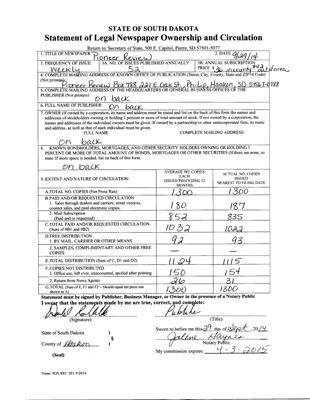 STATE OF SOUTH DAKOTA
Statement of Legal Newspaper Ownership and Circulation
Return to: Secretary of State, 500 E. Capitol, Pierre, SD 57501-5077
1. TITLE OF NEWSPAPER Pioneer Review
2. DATE 9/29/14
3. FREQUENCY OF ISSUE Weekly
3A. NO. OF ISSUES PUBLISHED ANNUALLY 52
3B. ANNUAL SUBSCRIPTION PRICE $
4. COMPLETE MAILING ADDRESS OF KNOWN OFFICE OF PUBLICATION (Street, City, County, State and ZIP+4 Code)
(Not printers)
Pioneer Review Box 788, 221 E Oak St, Philip, Haakon, SD 57567-0788
5. COMPLETE MAILING ADDRESS OF THE HEADQUARTERS OR GENERAL BUSINESS OFFICES OF THE
PUBLISHERS (Not printers)
on back
6. FULL NAME OF PUBLISHER: on back
7. OWNER (If owned by a corporation, its name and address must be stated and list on the back of this form the names and
addresses of stockholders owning or holding 1 percent or more of total amount of stock. If not owned by a corporation, the
names and addresses of the individual owners must be given. If owned by a partnership or other unincorporated firm, its name
and address, as well as that of each individual must be given.
FULL NAME COMPLETE MAILING ADDRESS
on back
8. KNOWN BONDHOLDERS, MORTGAGEES, AND OTHER SECURITY HOLDERS OWNING OR HOLDING 1
PERCENT OR MORE OF TOTAL AMOUNT OF BONDS, MORTGAGES OR OTHER SECURITIES (If there are none, so
state. If more space is needed, list on back of this form.
on back
9. EXTENT AND NATURE OF CIRCULATION
AVERAGE NO. COPIES
EACH
ISSUED PRECEDING 12
MONTHS
ACTUAL NO. COPIES
ISSUED
NEAREST TO FILING DATE
A. TOTAL NO. COPIES (Net Press Run) 1300 1300
B. PAID AND/OR REQUESTED CIRCULATION
1. Sales through dealers and carriers, street vendors,
counter sales, and paid electronic copies. 180 187
2. Mail Subscription
(Paid and or requested) 852 835
C. TOTAL PAID AND/OR REQUESTED CIRCULATION
(Sum of 9B1 and 9B2) 1032 1022
D. FREE DISTRIBUTION
1. BY MAIL, CARRIER OR OTHER MEANS 92 93
2. SAMPLES, COMPLIMENTARY AND OTHER FREE
COPIES — —
E. TOTAL DISTRIBUTION (Sum of C, D1 and D2) 1124 1115
F. COPIES NOT DISTRIBUTED
1. Office use, left over, unaccounted, spoiled after printing 150 154
2. Return from News Agents 26 31
G. TOTAL (Sum of E, F1 and F2 – Should equal net press run
shown in A) 1300 1300
Statement must be signed by Publisher, Business Manager, or Owner in the presence of a Notary Public
I swear that the statements made by me are true, correct, and complete:
Publisher
(Signature) (Title)
State of South Dakota )
§
County of Haakon )
(Seal)
Sworn to before me this 29 day of Sept, 2014
Notary Public
My commission expires: 4-3-2015